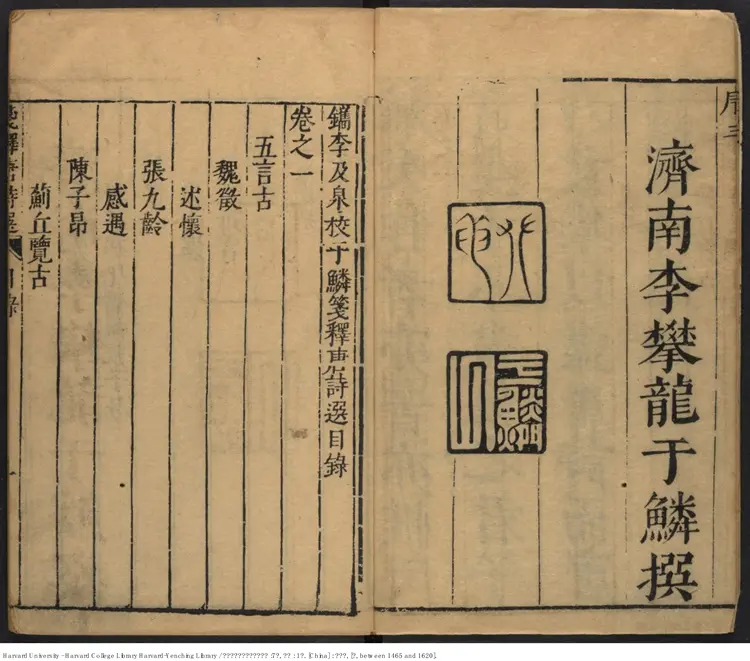 濟南李攀龍于鱗撰
鐫李及泉校于鱗箋釋唐詩選目錄
卷之一
五言古
魏徵
述懷
張九齡
感遇
陳子昂
薊丘覽古
Harvard University - Harvard College Library Harvard-Yenching Library / ???????????? :7?, ?? : 1?. [China] : ???, ??, between 1465 and 1620].